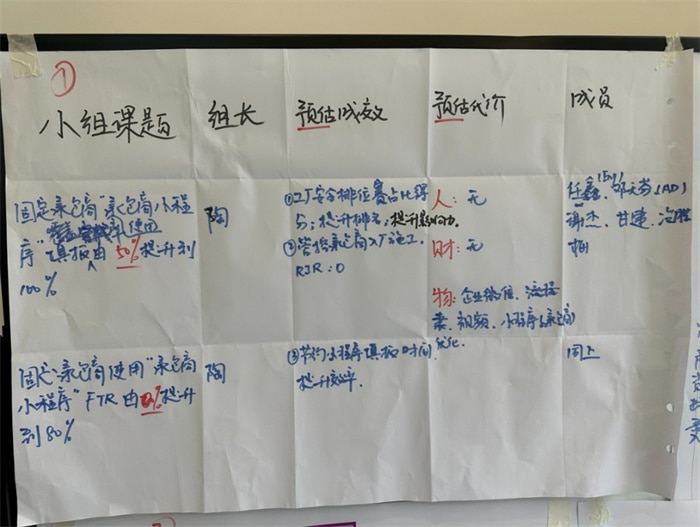 ①
小组课题 组长 预估成效 预估代价 成员
固定承包商"承包商小程
序"填报由50%提升到
100%
陶
①工厂安全排位赛占比得
分;提升排名;提升影响力.
②管控承包商入厂施工.
RIR:0
人:无
财:无
物:企业微信、流程
小程序(承包商)
优化.
任鑫(EM)
谢杰、甘建
固定承包商使用"承包商
小程序"FTR由0%提升
到80%
陶
③节约小程序填报时间.
提升效率.
同上